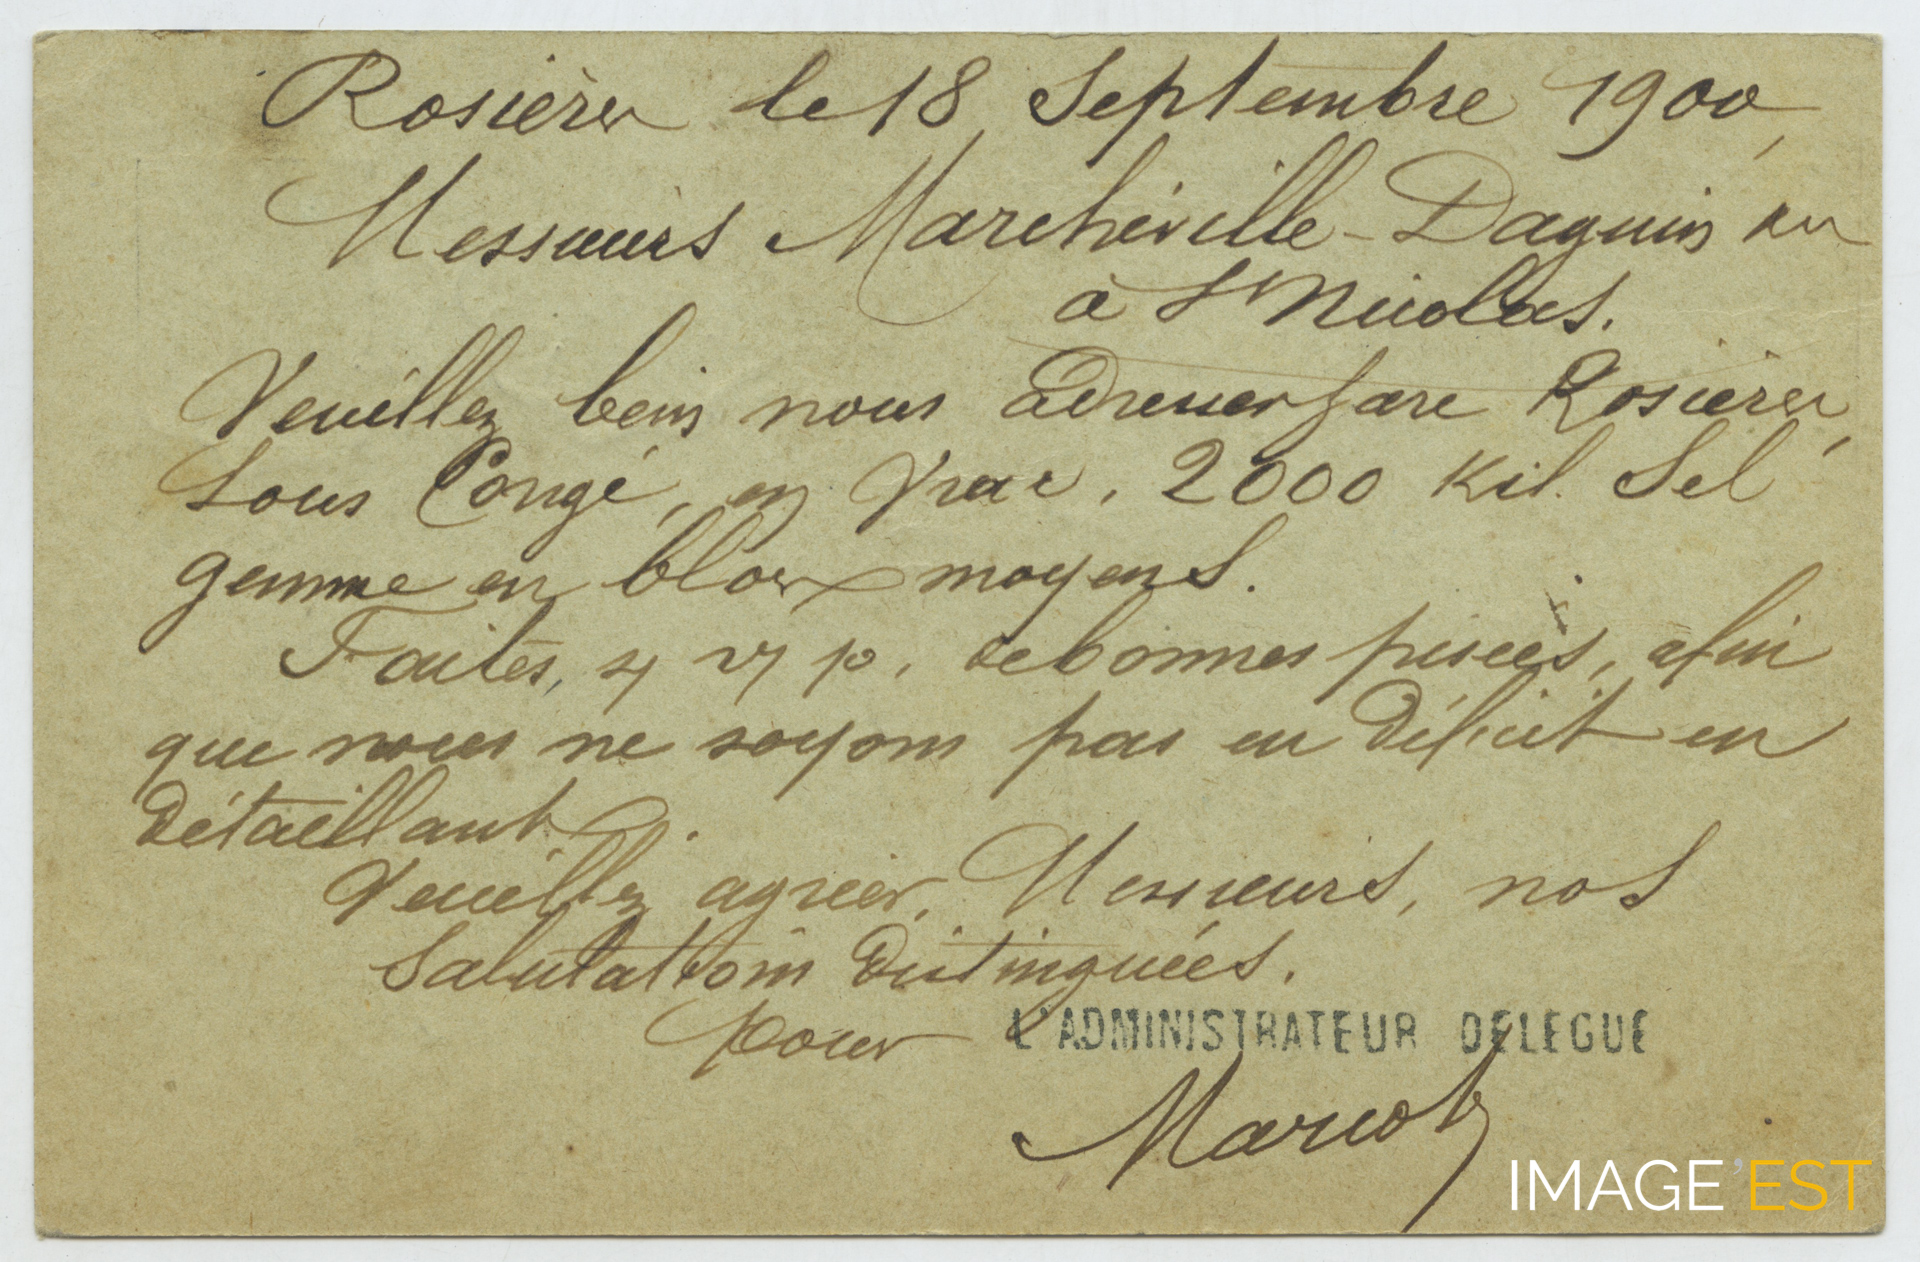 Rosières le 18 Septembre 1900,
Messieurs Marchéville-Daguin &
à St Nicolas.
Veuillez bien nous adresser gare Rosières,
Sous Congé, en Vrac, 2000 Kil. Sel
gemme en blocs moyens.
Faites, s v p, de bonnes pesées, afin
que nous ne soyons pas en déficit en
détaillant.
Veuillez agréer, Messieurs, nos
Salutations distinguées.
pour L'ADMINISTRATEUR DELEGUE
IMAGE'EST